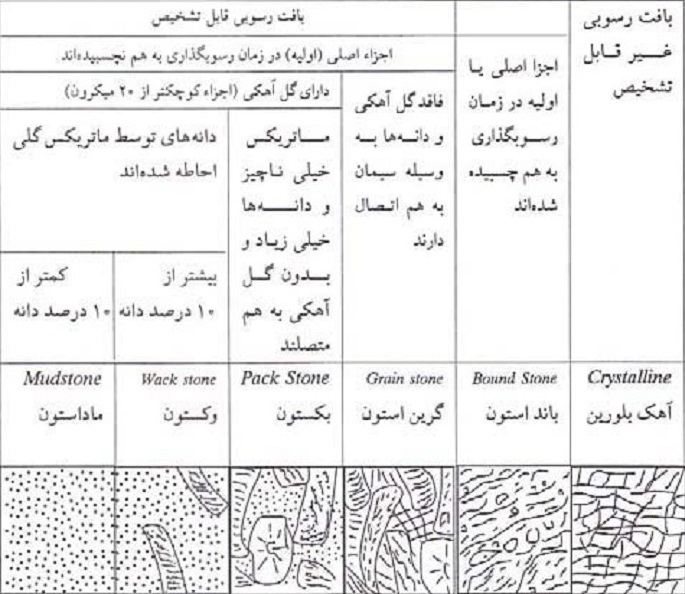 بافت رسوبی
غیر قابل
تشخیص
بافت رسوبی قابل تشخیص
اجزا اصلی یا
اولیه در زمان
رسوبگذاری
به هم چسبیده
شده‌اند
اجزاء اصلی (اولیه) در زمان رسوبگذاری به هم نچسبیده‌اند
فاقد گل آهکی
و دانه‌ها به
وسیله سیمان
به هم اتصال
دارند
دارای گل آهکی (اجزاء کوچکتر از ۲۰ میکرون)
ماتریکس
خیلی ناچیز
و دانه‌ها
خیلی زیاد و
بدون گل
آهکی به هم
متصلند
دانه‌های توسط ماتریکس گلی
احاطه شده‌اند
بیشتر از
۱۰ درصد دانه
کمتر از
۱۰ درصد دانه
Crystalline
آهک بلورین
Bound Stone
باند استون
Grain stone
گرین استون
Pack Stone
بکستون
Wack stone
وکستون
Mudstone
ماداستون